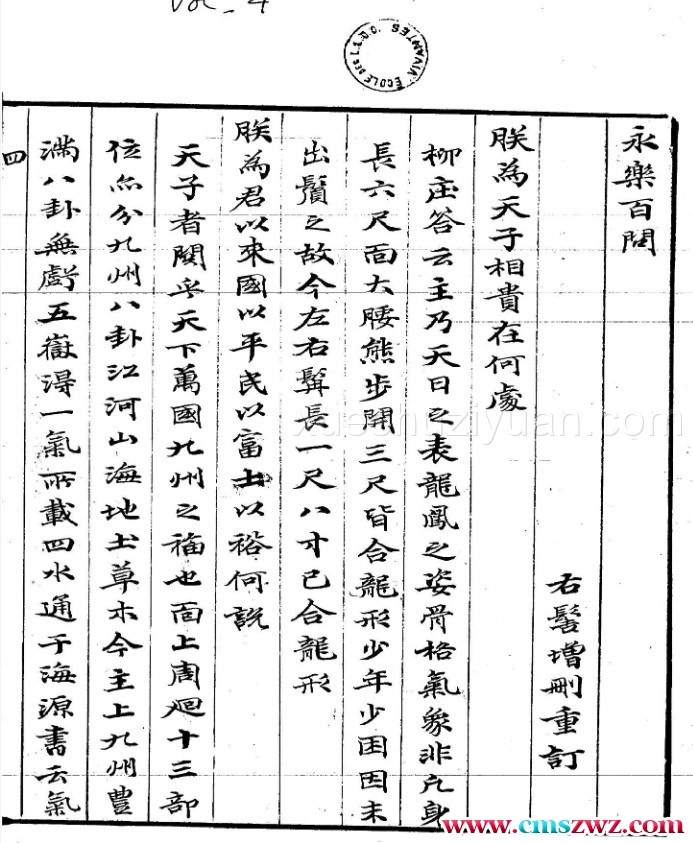 Vol - 4
ECOLE DES L.S.O.O.
永樂百問
右髻增刪重訂
朕為天子相貴在何處
柳庄答云主乃天日之表龍鳳之姿骨格氣象非凢身
長六尺面大腰熊步開三尺皆合龍形少年少困因未
出鬚之故今左右髯長一尺八寸已合龍形
朕為君以來國以平民以富土以裕何說
天子者關乎天下萬國九州之福也面上周廻十三部
位亦分九州八卦江河山海地土草木今主上九州豊
滿八卦無虧五嶽得一氣所載四水通于海源書云氣
四
xuexiuziyuan.com
www.cmszwz.com